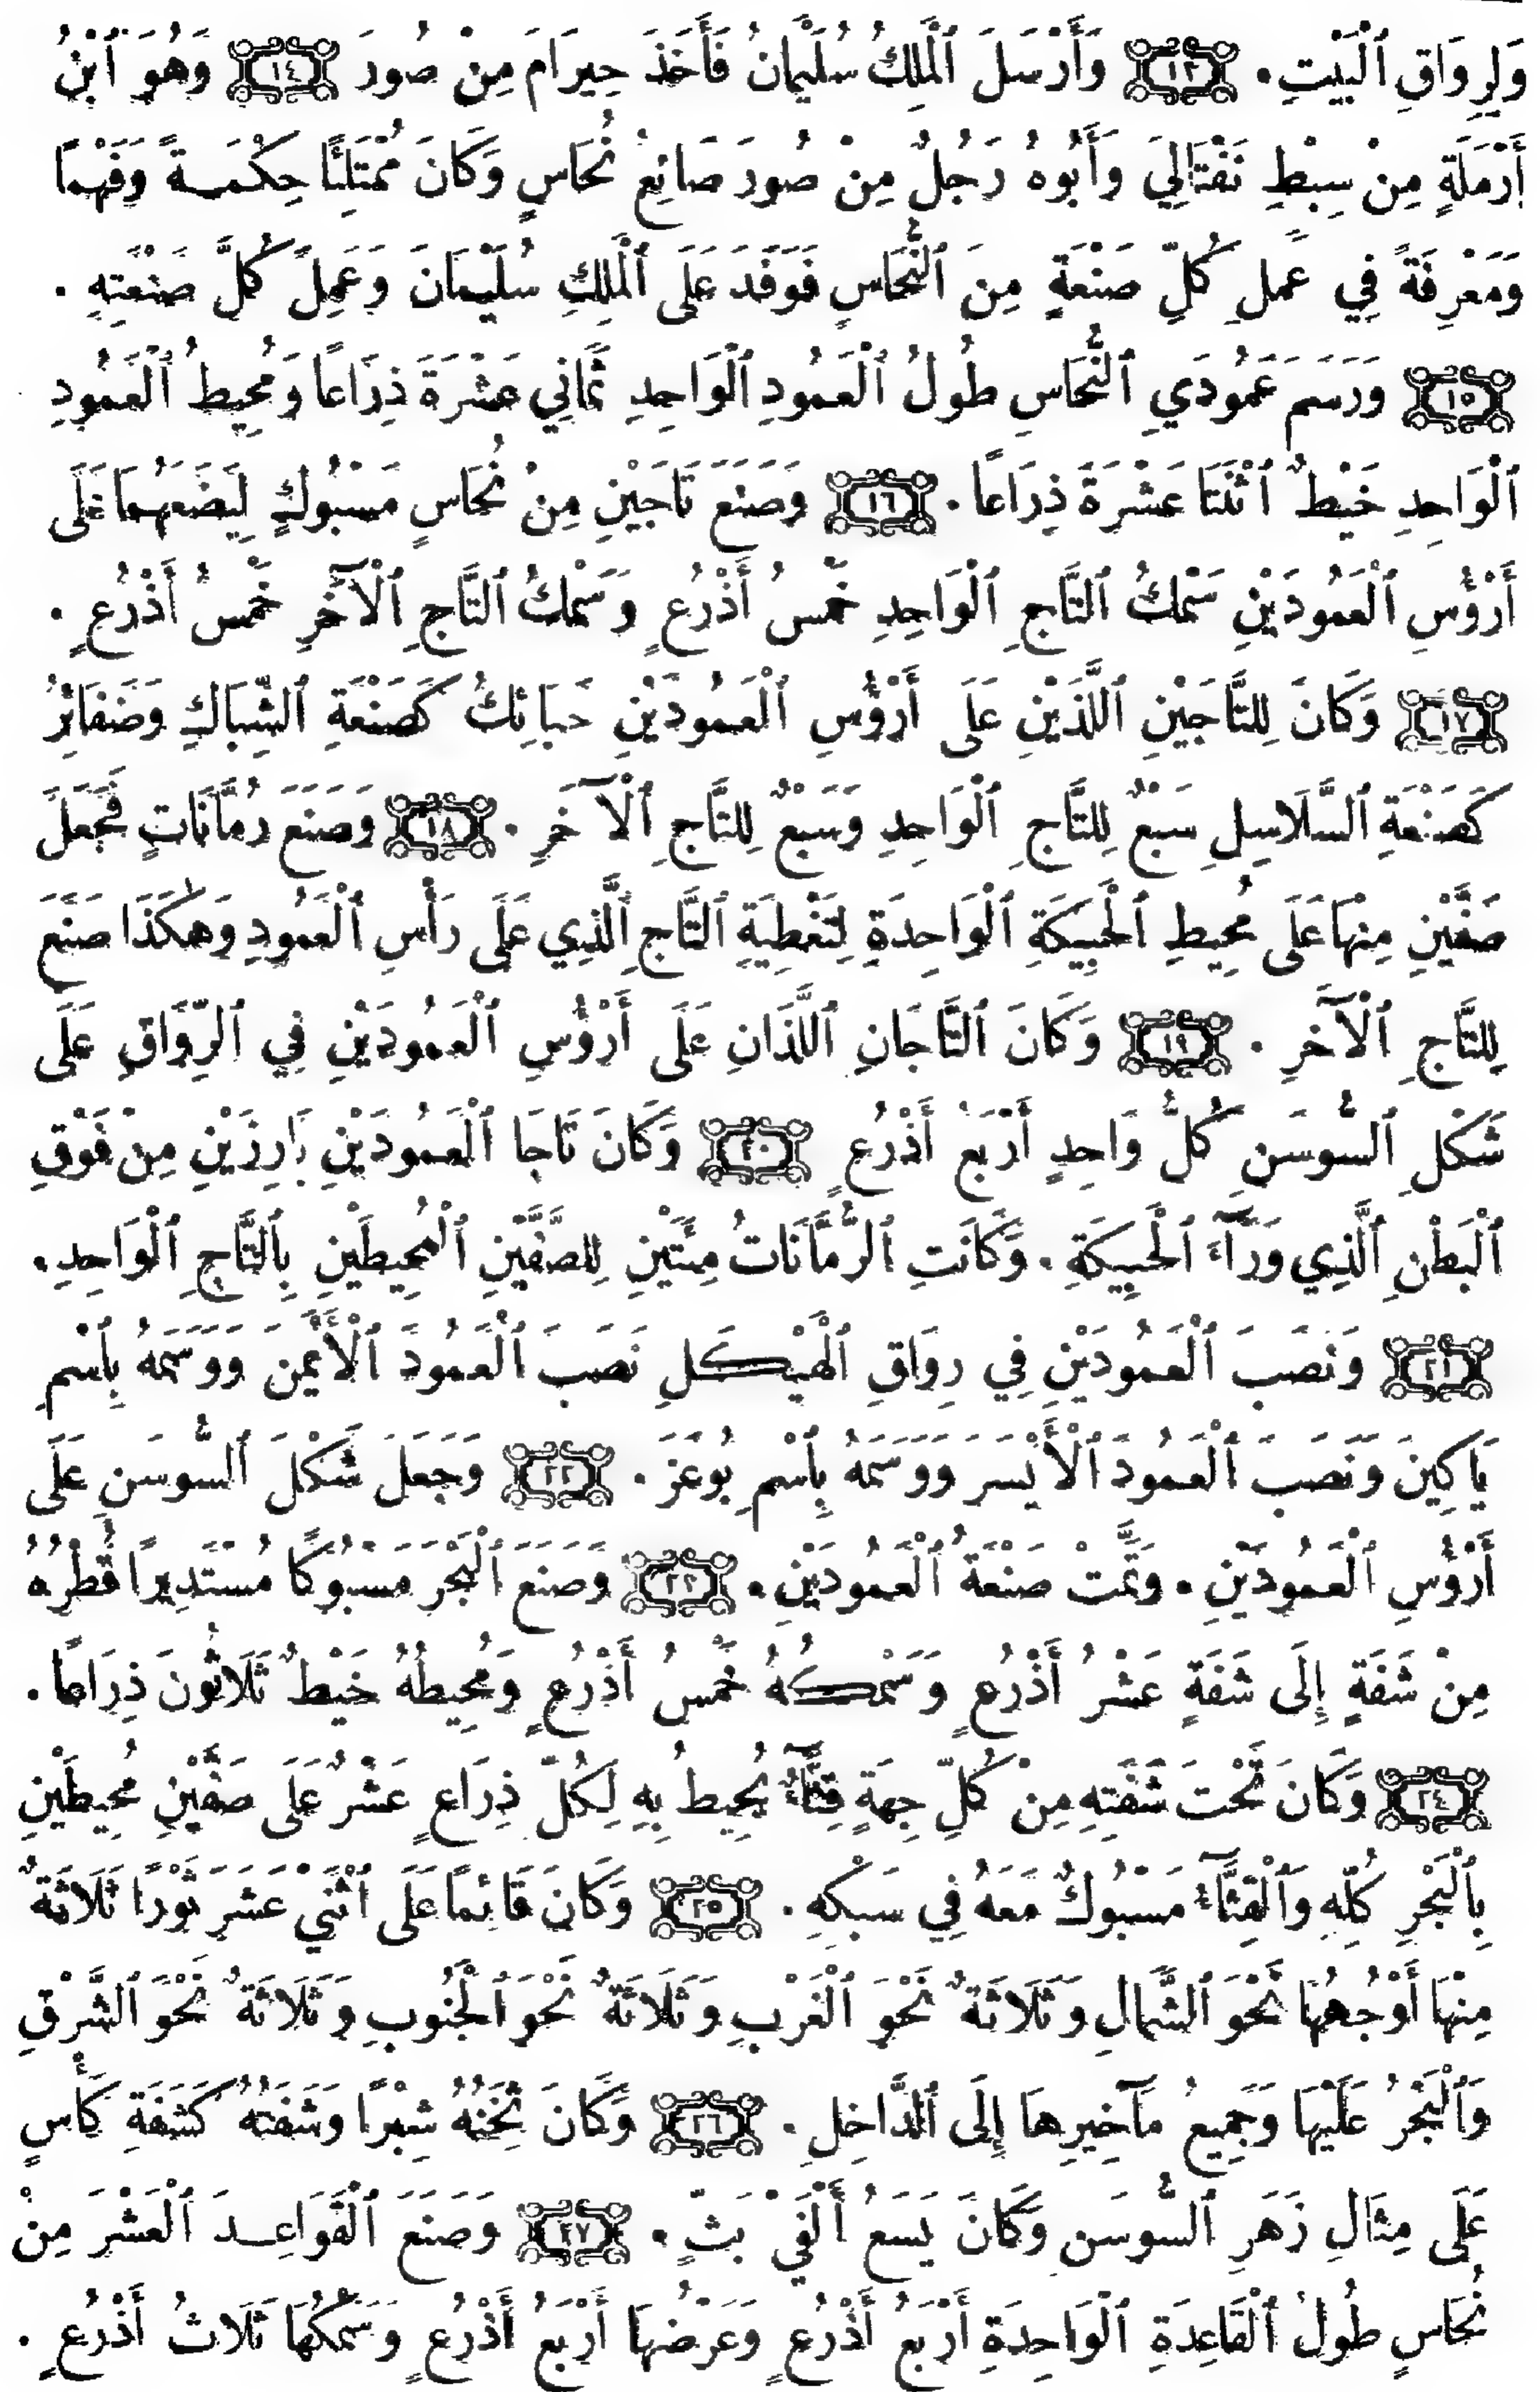 وَلِرِوَاقِ ٱلْبَيْتِ. ١٣ وَأَرْسَلَ ٱلْمَلِكُ سُلَيْمَانُ فَأَخَذَ حِيرَامَ مِنْ صُورَ ١٤ وَهُوَ ٱبْنُ
أَرْمَلَةٍ مِنْ سِبْطِ نَفْتَالِيَ وَأَبُوهُ رَجُلٌ مِنْ صُورَ صَائِغُ نُحَاسٍ وَكَانَ مُمْتَلِئًا حِكْمَةً وَفَهْمًا
وَمَعْرِفَةً فِي عَمَلِ كُلِّ صَنْعَةٍ مِنَ ٱلنُّحَاسِ فَوَفَدَ عَلَى ٱلْمَلِكِ سُلَيْمَانَ وَعَمِلَ كُلَّ صَنْعَتِهِ.
١٥ وَرَسَمَ عَمُودَيِ ٱلنُّحَاسِ طُولُ ٱلْعَمُودِ ٱلْوَاحِدِ ثَمَانِي عَشْرَةَ ذِرَاعًا وَمُحِيطُ ٱلْعَمُودِ
ٱلْوَاحِدِ خَيْطٌ ٱثْنَتَا عَشْرَةَ ذِرَاعًا. ١٦ وَصَنَعَ تَاجَيْنِ مِنْ نُحَاسٍ مَسْبُوكٍ لِيَضَعَهُمَا عَلَى
أَرْؤُسِ ٱلْعَمُودَيْنِ سَمْكُ ٱلتَّاجِ ٱلْوَاحِدِ خَمْسُ أَذْرُعٍ وَسَمْكُ ٱلتَّاجِ ٱلْآخَرِ خَمْسُ أَذْرُعٍ.
١٧ وَكَانَ لِلتَّاجَيْنِ ٱللَّذَيْنِ عَلَى أَرْؤُسِ ٱلْعَمُودَيْنِ حَبَائِكُ كَصَنْعَةِ ٱلشِّبَاكِ وَضَفَائِرُ
كَصَنْعَةِ ٱلسَّلَاسِلِ سَبْعٌ لِلتَّاجِ ٱلْوَاحِدِ وَسَبْعٌ لِلتَّاجِ ٱلْآخَرِ. ١٨ وَصَنَعَ رُمَّانَاتٍ فَجَعَلَ
صَفَّيْنِ مِنْهَا عَلَى مُحِيطِ ٱلْحَبِيكَةِ ٱلْوَاحِدَةِ لِتَغْطِيَةِ ٱلتَّاجِ ٱلَّذِي عَلَى رَأْسِ ٱلْعَمُودِ وَهٰكَذَا صَنَعَ
لِلتَّاجِ ٱلْآخَرِ. ١٩ وَكَانَ ٱلتَّاجَانِ ٱللَّذَانِ عَلَى أَرْؤُسِ ٱلْعَمُودَيْنِ فِي ٱلرِّوَاقِ عَلَى
شَكْلِ ٱلسُّوسَنِ كُلُّ وَاحِدٍ أَرْبَعُ أَذْرُعٍ ٢٠ وَكَانَ تَاجَا ٱلْعَمُودَيْنِ بَارِزَيْنِ مِنْ فَوْقِ
ٱلْبَطْنِ ٱلَّذِي وَرَآءَ ٱلْحَبِيكَةِ. وَكَانَتِ ٱلرُّمَّانَاتُ مِئَتَيْنِ لِلصَّفَّيْنِ ٱلْمُحِيطَيْنِ بِٱلتَّاجِ ٱلْوَاحِدِ.
٢١ وَنَصَبَ ٱلْعَمُودَيْنِ فِي رِوَاقِ ٱلْهَيْكَلِ نَصَبَ ٱلْعَمُودَ ٱلْأَيْمَنَ وَوَسَمَهُ بِٱسْمِ
يَاكِينَ وَنَصَبَ ٱلْعَمُودَ ٱلْأَيْسَرَ وَوَسَمَهُ بِٱسْمِ بُوعَزَ. ٢٢ وَجَعَلَ شَكْلَ ٱلسُّوسَنِ عَلَى
أَرْؤُسِ ٱلْعَمُودَيْنِ. وَتَمَّتْ صَنْعَةُ ٱلْعَمُودَيْنِ. ٢٣ وَصَنَعَ ٱلْبَحْرَ مَسْبُوكًا مُسْتَدِيرًا قُطْرُهُ
مِنْ شَفَةٍ إِلَى شَفَةٍ عَشْرُ أَذْرُعٍ وَسَمْكُهُ خَمْسُ أَذْرُعٍ وَمُحِيطُهُ خَيْطٌ ثَلَاثُونَ ذِرَاعًا.
٢٤ وَكَانَ تَحْتَ شَفَتِهِ مِنْ كُلِّ جِهَةٍ قِثَّآءٌ يُحِيطُ بِهِ لِكُلِّ ذِرَاعٍ عَشْرٌ عَلَى صَفَّيْنِ مُحِيطَيْنِ
بِٱلْبَحْرِ كُلِّهِ وَٱلْقِثَّآءُ مَسْبُوكٌ مَعَهُ فِي سَبْكِهِ. ٢٥ وَكَانَ قَائِمًا عَلَى ٱثْنَيْ عَشَرَ ثَوْرًا ثَلَاثَةٌ
مِنْهَا أَوْجُهُهَا نَحْوَ ٱلشِّمَالِ وَثَلَاثَةٌ نَحْوَ ٱلْغَرْبِ وَثَلَاثَةٌ نَحْوَ ٱلْجَنُوبِ وَثَلَاثَةٌ نَحْوَ ٱلشَّرْقِ
وَٱلْبَحْرُ عَلَيْهَا وَجَمِيعُ مَآخِيرِهَا إِلَى ٱلدَّاخِلِ. ٢٦ وَكَانَ ثِخَنُهُ شِبْرًا وَشَفَتُهُ كَشَفَةِ كَأْسٍ
عَلَى مِثَالِ زَهَرِ ٱلسُّوسَنِ وَكَانَ يَسَعُ أَلْفَيْ بَثٍّ. ٢٧ وَصَنَعَ ٱلْقَوَاعِدَ ٱلْعَشْرَ مِنْ
نُحَاسٍ طُولُ ٱلْقَاعِدَةِ ٱلْوَاحِدَةِ أَرْبَعُ أَذْرُعٍ وَعَرْضُهَا أَرْبَعُ أَذْرُعٍ وَسَمْكُهَا ثَلَاثُ أَذْرُعٍ.